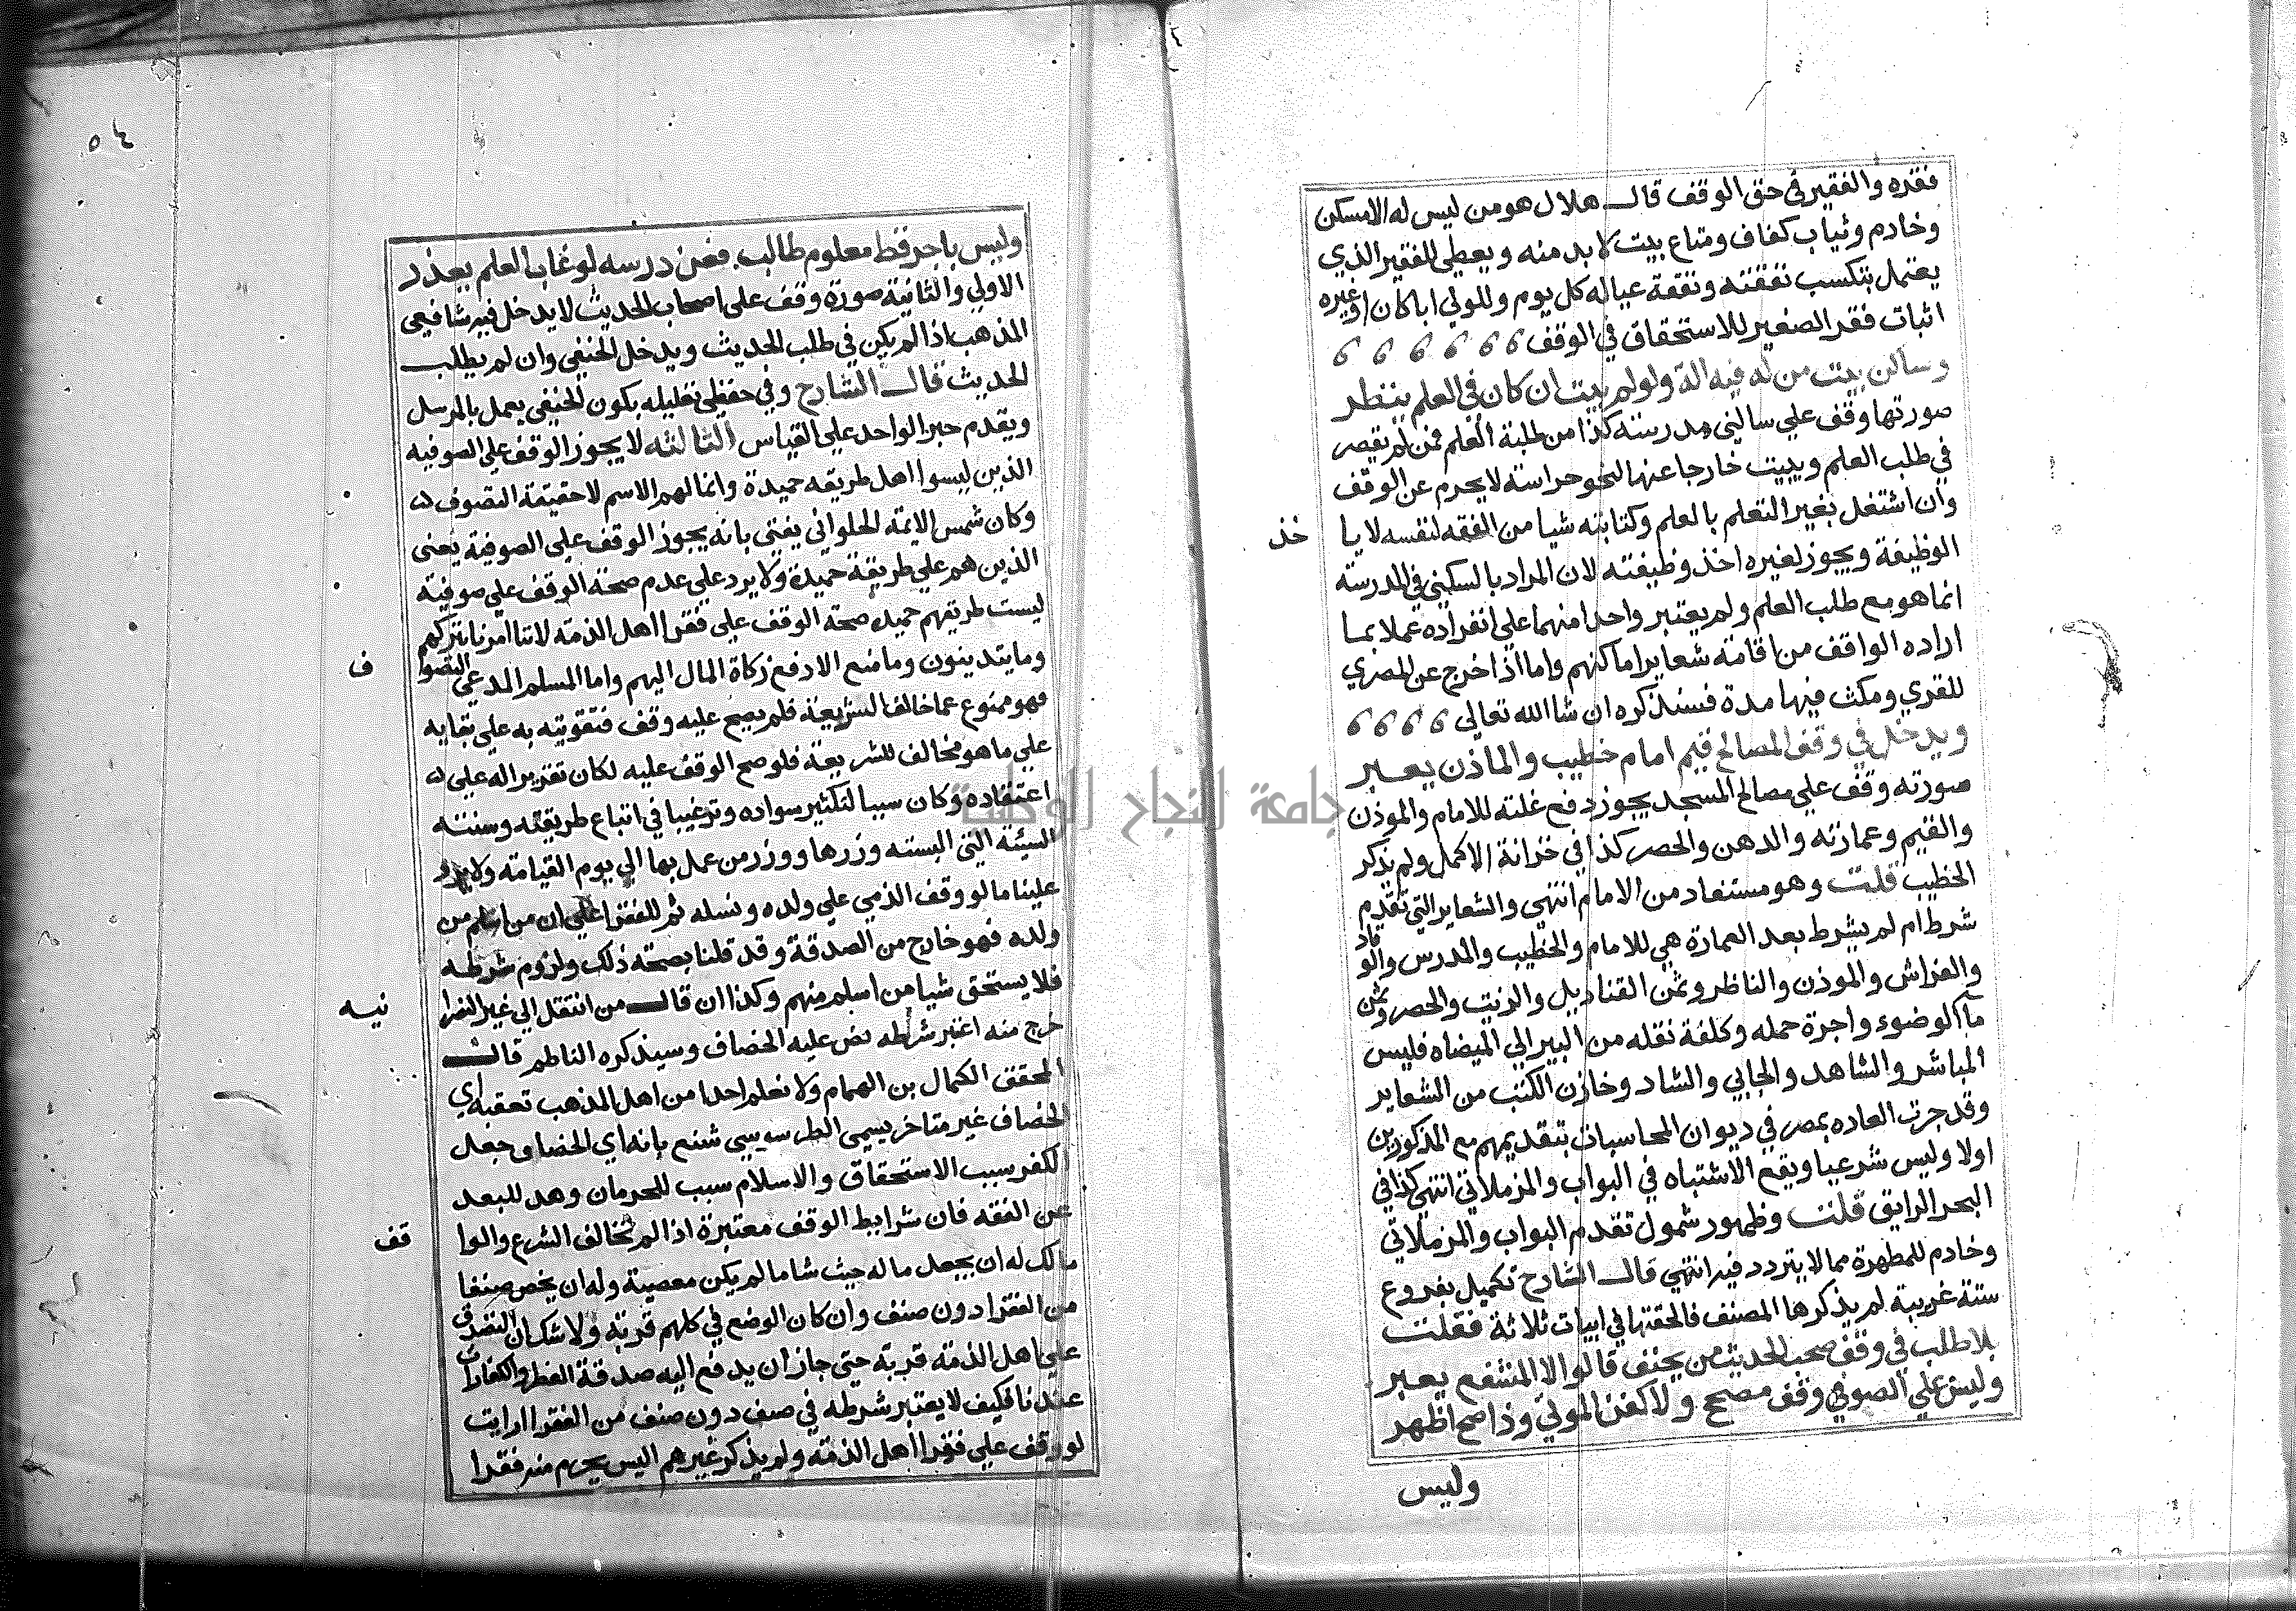 فقره والفقير في حق الوقف قال هلال هو من ليس له الا مسكن
وخادم وثياب كفاف ومتاع بيت لا بد منه ويعطي للفقير الذي
يعتمل بتكسب نفقته ونفقة عياله كل يوم وللولي ابا كان او غيره
اثبات فقر الصغير للاستحقاق في الوقف
وساكن بيت من له فيه الة ولو لم يبت ان كان في العلم ينظر
صورتها وقف علي ساكني مدرسته كذا من طلبة العلم فمن لم يقصر
في طلب العلم ويبيت خارجا عنها لنحو حراسته لا يحرم عن الوقف
وان اشتغل بغير التعلم بالعلم وكتابته شيا من الفقه لنفسه لا يا
خذ
الوظيفة ويجوز لغيره اخذ وظيفته لان المراد بالسكني في المدرسته
انما هو مع طلب العلم ولم يعتبر واحدا منهما علي انفراده عملا بما
اراده الواقف من اقامة شعاير اماكنهم واما اذا خرج عن المصري
للقري ومكث فيها مدة فسنذكره ان شا الله تعالي
ويدخل في وقف المصالح قيم امام خطيب والماذن يعبر
صورته وقف علي مصالح المسجد يجوز دفع غلته للامام والموذن
والقيم وعمارته والدهن والحصر كذا في خزانة الاكمل ولم يذكر
الخطيب قلت وهو مستفاد من الامام انتهي والشعاير التي تقدم
شرط ام لم يشرط بعد العمارة هي للامام والخطيب والمدرس والو
قاد
والفراش والموذن والناظر وثمن القناديل والزيت والحصر وثمن
مآ الوضوء واجرة حمله وكلفة نقله من البير الي الميضاه فليس
المباشر والشاهد والجابي والشاد وخازن الكتب من الشعاير
وقد جرت العاده بمصر في ديوان المحاسبات بتقديمهم مع المذكورين
اولا وليس شرعيا ويقع الاشتباه في البواب والمزملاتي انتهي كذا في
البحر الرايق قلت وظهور شمول تقدم البواب والمزملاتي
وخادم للمطهرة مما لا يتردد فيه انتهي قال الشارح تكميل بفروع
ستة غريبة لم يذكرها المصنف فالحقتها في ابيات ثلاثة فقلت
بلا طلب في وقف صحب الحديث من يحنف قالوا لا المتشفع يعبر
وليس علي الصوفي وقف مصحح ولا كفن الموتي وذا صح اظهر
وليس
٥٤
وليس باجر قط معلوم طالب فعن درسه لو غاب العلم يعذر
الاولي والثانية صورة وقف علي اصحاب الحديث لا يدخل فيه شافعي
المذهب اذا لم يكن في طلب الحديث ويدخل الحنفي وان لم يطلب
الحديث قال الشارح وفي حفظي تعليله بكون الحنفي يعمل بالمرسل
ويقدم خبر الواحد علي القياس الثالثه لا يجوز الوقف علي الصوفيه
الذين ليسوا اهل طريقه حميدة وانما لهم الاسم لا حقيقة التصوف
وكان شمس الايمة الحلواني يفتي بانه يجوز الوقف علي الصوفية يعني
الذين هم علي طريقة حميدة ولا يرد علي عدم صحة الوقف علي صوفية
ليست طريقهم حميده صحة الوقف علي فقرا اهل الذمه لاننا امرنا بتركهم
وما يتدينون وما منع الا دفع زكاة المال اليهم واما المسلم المدعي التصو
ف
فهو ممنوع عما خالف الشريعة فلم يصح عليه وقف فتقويته به علي بقايه
علي ما هو مخالف للشريعة فلو صح الوقف عليه لكان تقديرا له علي
اعتقاده وكان سببا لتكثير سواده وترغيبا في اتباع طريقته وسنته
السيئة التي البسته وزرها ووزر من عمل بها الي يوم القيامة ولا يرد
علينا ما لو وقف الذمي علي ولده ونسله ثم للفقرا علي ان من اسلم من
ولده فهو خارج من الصدقة وقد قلنا بصحته ذلك ولزوم شرطه
فلا يستحق شيا من اسلم منهم وكذا ان قال من انتقل الي غير النصرا
نيه
خرج منه اعتبر شرطه نص عليه الخصاف وسيذكره الناظم قال
المحقق الكمال بن الهمام ولا نعلم احدا من اهل المذهب تعقبه اي
الخصاف غير متاخر يسمي الطرسوسي شنع بانه اي الخصاف جعل
الكفر سبب الاستحقاق والاسلام سبب للحرمان وهد للبعد
عن الفقه فان شرايط الوقف معتبرة اذا لم تخالف الشرع والوا
قف
مالك له ان يجعل ماله حيث شا ما لم يكن معصية وله ان يخص صنفا
من الفقرا دون صنف وان كان الوضع في كلهم قربة ولا شك ان التصدق
علي اهل الذمه قربة حتي جاز ان يدفع اليه صدقة الفطر والكفارات
عندنا فكيف لا يعتبر شرطه في صنف دون صنف من الفقرا ارايت
لو وقف علي فقرا اهل الذمه ولم يذكر غيرهم اليس يحرم منه فقرا
جامعة النجاح الوطنية